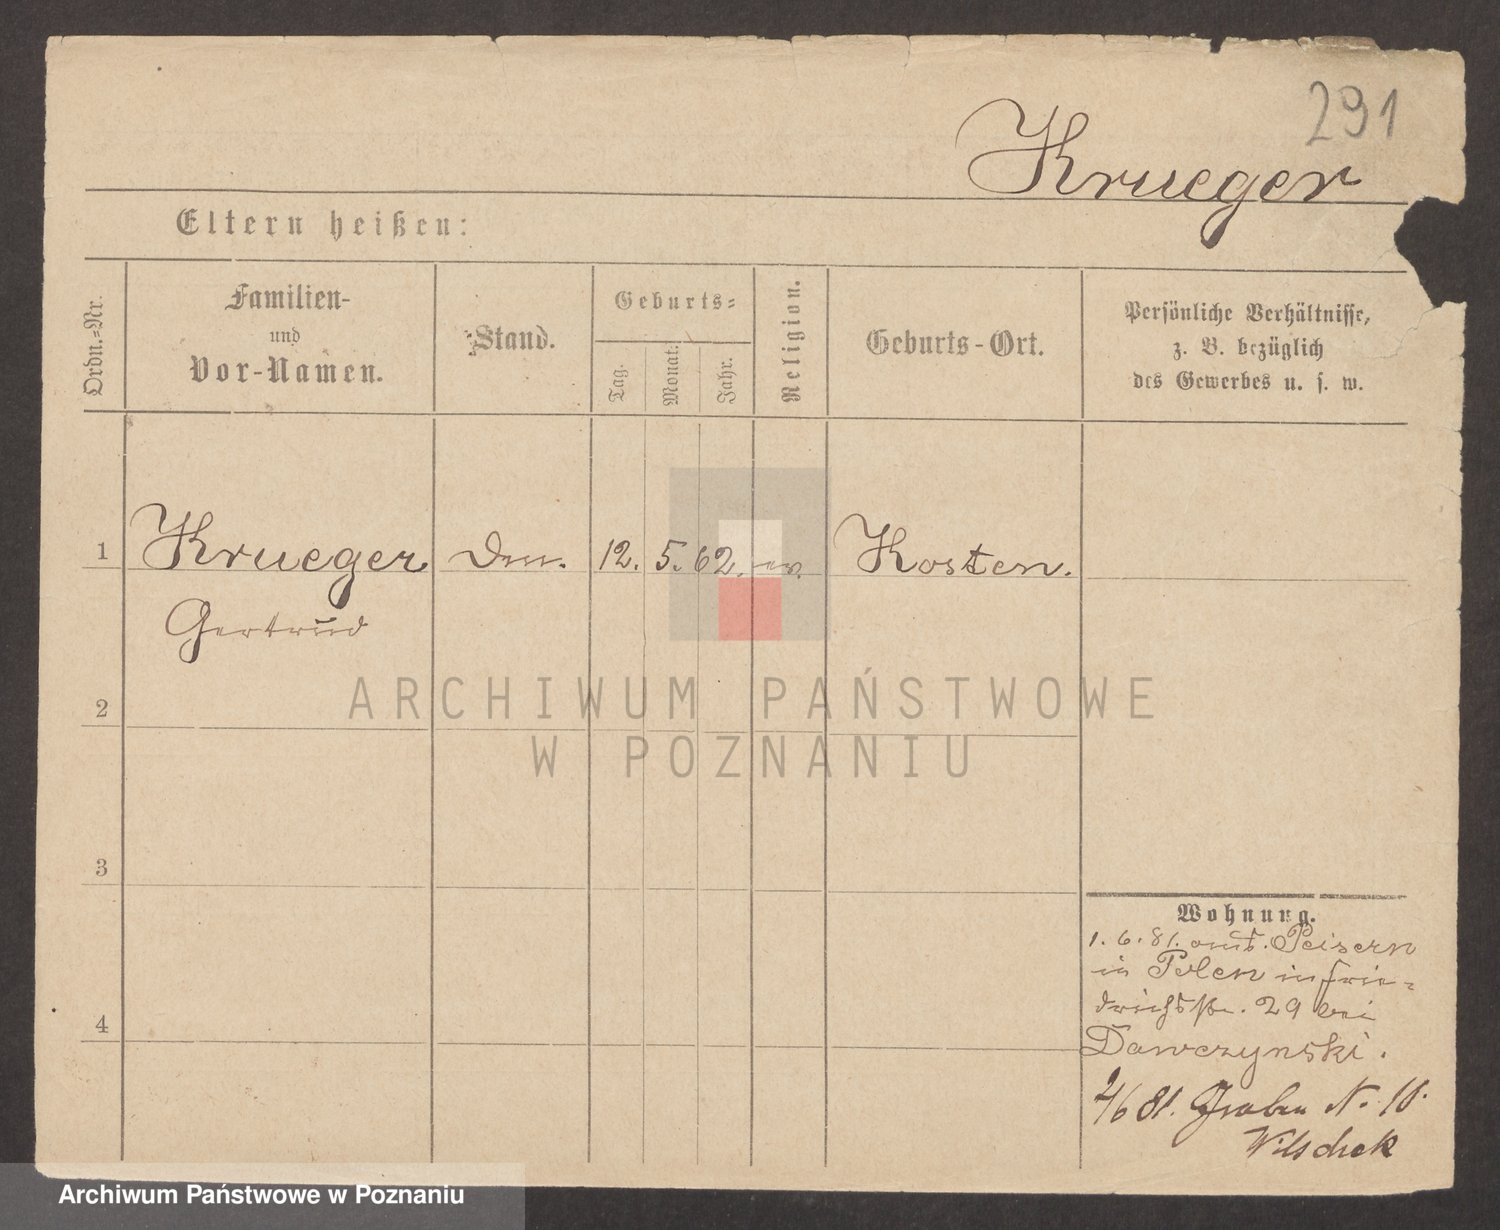 291
Krueger
Eltern heißen:
Ordn.-Nr.
Familien-
und
Vor-Namen.
Stand.
Geburts-
Tag.
Monat.
Jahr.
Religion.
Geburts-Ort.
Persönliche Verhältnisse,
z. B. bezüglich
des Gewerbes u. s. w.
1 Krueger 12. 5. 62. ev. Kosten.
Gertrud
2
3
4
Wohnung.
1. 6. 81. Peisern
in Polen in Frie-
drichstr. 29 bei
Dawczynski.
2/6 81. Graben N. 10.
ARCHIWUM PAŃSTWOWE
W POZNANIU
Archiwum Państwowe w Poznaniu